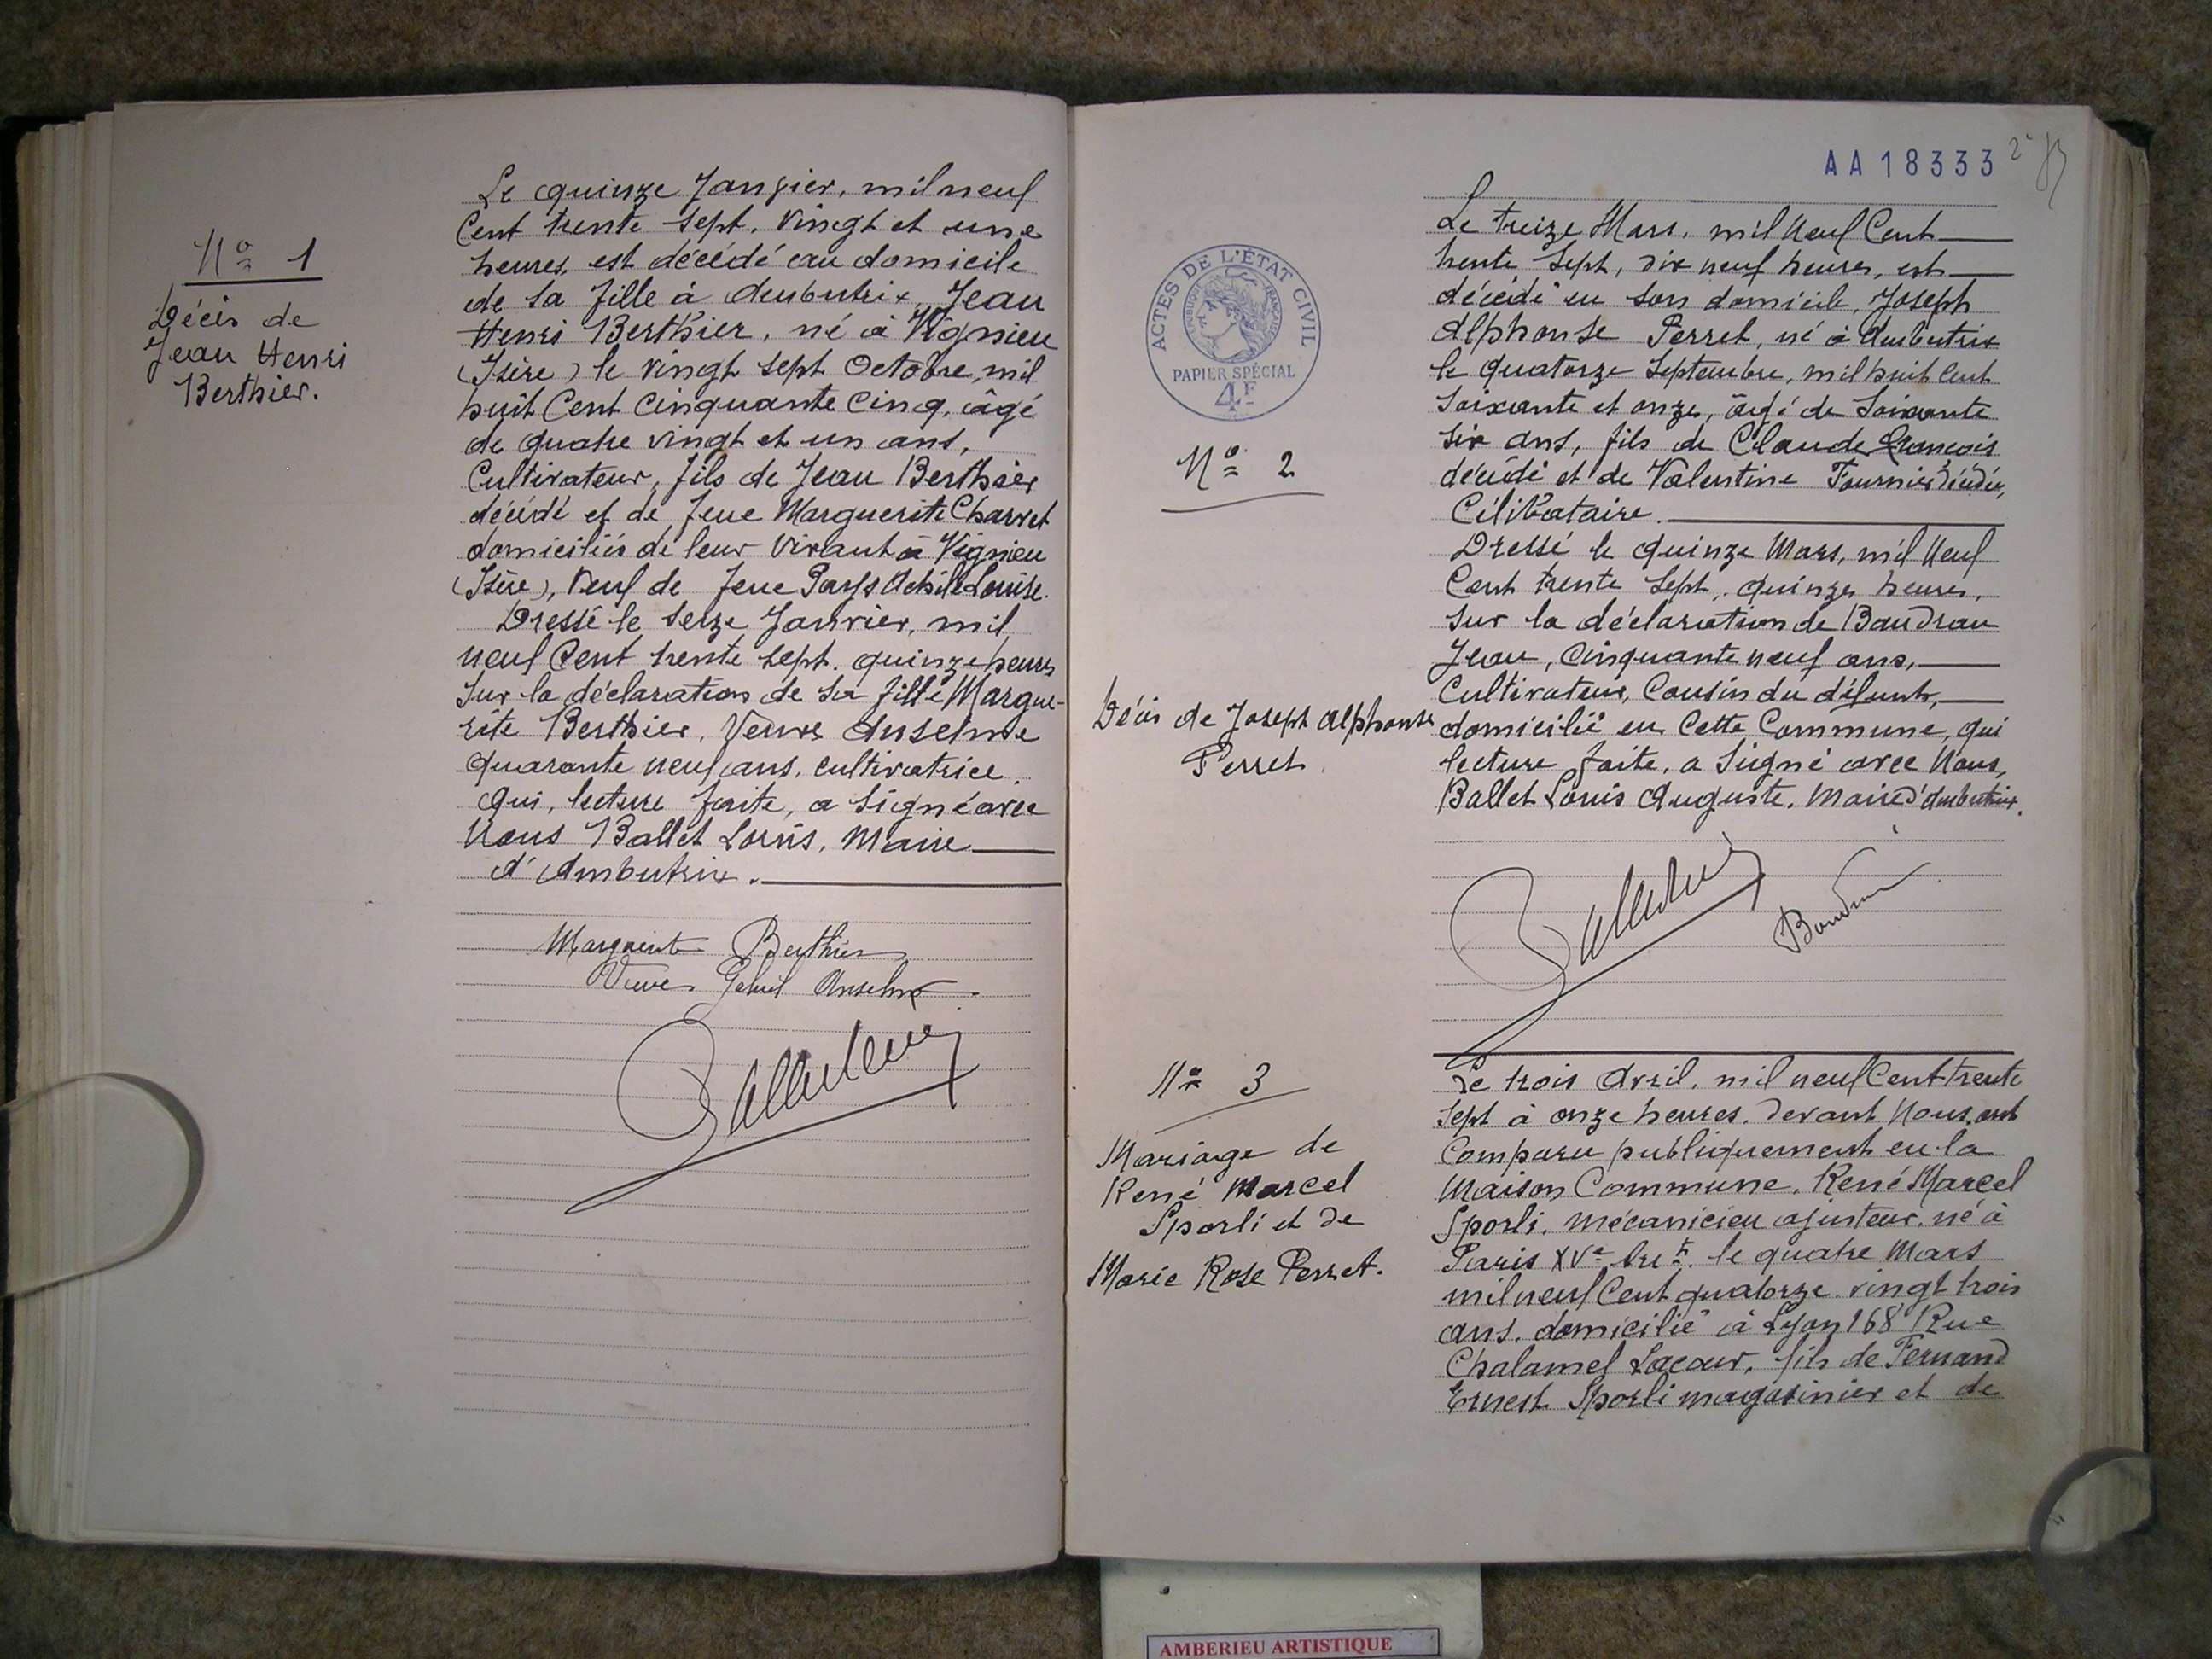 Nº 1
Décès de
Jean Henri
Berthier.
Le quinze Janvier, mil neuf
Cent trente sept, vingt et une
heures, est décédé au domicile
de sa fille à Ambutrix, Jean
Henri Berthier, né à Vignieu
(Isère) le vingt sept Octobre, mil
huit Cent Cinquante Cinq, âgé
de quatre vingt et un ans,
Cultivateur, fils de Jean Berthier
décédé et de feue Marguerite Charvet
domiciliés de leur vivant à Vignieu
(Isère), veuf de feue Louise.
Dressé le seize Janvier, mil
neuf Cent trente sept. quinze heures
sur la déclaration de sa fille Margue-
rite Berthier, Veuve Anselme
quarante neuf ans, cultivatrice.
qui, lecture faite, a signé avec
Nous Ballet Louis, Maire
d'Ambutrix.
Marguerite Berthier
Veuve Anselme
AA18333
ACTES DE L'ÉTAT CIVIL
RÉPUBLIQUE FRANÇAISE
PAPIER SPÉCIAL
4F
Nº 2
Décès de Joseph Alphonse
Perret
Le treize Mars, mil Neuf Cent
trente sept, dix neuf heures, est
décédé en son domicile, Joseph
Alphonse Perret, né à Ambutrix
le quatorze Septembre, mil huit Cent
Soixante et onze, âgé de Soixante
six ans, fils de Claude François
décédé et de Valentine Fournier décédée,
Célibataire.
Dressé le quinze Mars, mil Neuf
Cent trente Sept, quinze heures,
sur la déclaration de Baudran
Jean, Cinquante neuf ans,
Cultivateur, Cousin du défunt,
domicilié en Cette Commune, qui
lecture faite, a Signé avec Nous,
Ballet Louis Auguste, Maire d'Ambutrix.
Nº 3
Mariage de
René Marcel
Sporli et de
Marie Rose Perret.
Le trois Avril, mil neuf Cent trente
sept à onze heures, devant Nous, ont
Comparu publiquement en la
Maison Commune, René Marcel
Sporli, mécanicien ajusteur, né à
Paris XVe Arrt. le quatre Mars
mil neuf Cent quatorze, vingt trois
ans, domicilié à Lyon 168 Rue
Challamel Lacour, fils de Fernand
Ernest Sporli magasinier et de
AMBERIEU ARTISTIQUE